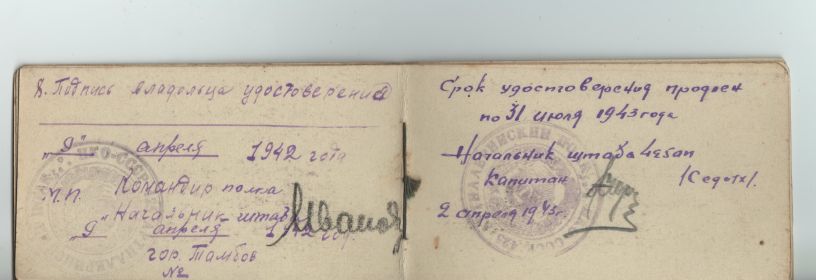 8. Подпись владельца удостоверения
"9" апреля 1942 года
М.П. Командир полка
Начальник штаба
"9" апреля 1942 год
гор. Тамбов
№
Иванов
Срок удостоверения продлен
по 31 июля 1943 года
Начальник штаба
Капитан /Седотх/.
2 апреля 1943г.